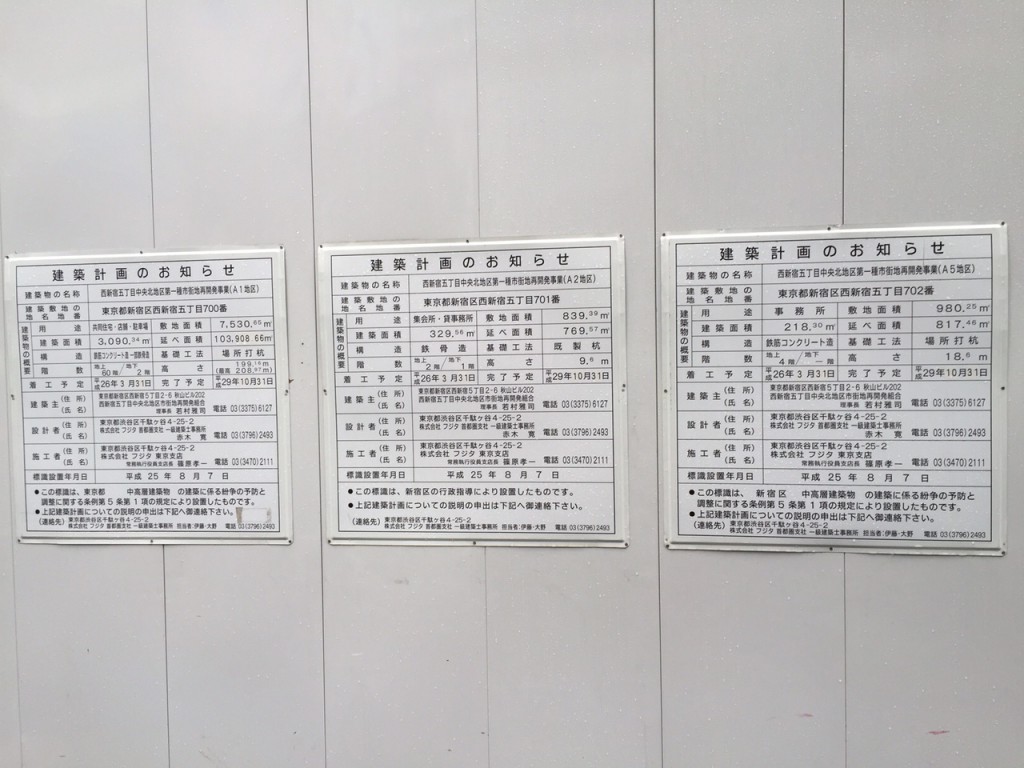 建築計画のお知らせ
建築物の名称 西新宿五丁目中央北地区第一種市街地再開発事業(A1地区)
建築敷地の地名地番 東京都新宿区西新宿五丁目700番
建築物の概要
用途 共同住宅・店舗・駐車場 敷地面積 7,530.65㎡
建築面積 3,090.34㎡ 延べ面積 103,908.66㎡
構造 鉄筋コンクリート造 一部鉄骨造 基礎工法 場所打杭
階数 地上60階/地下2階 高さ 199.16m (最高 208.97m)
着工予定 平成26年3月31日 完了予定 平成29年10月31日
建築主 (住所) 東京都新宿区西新宿5丁目2-6 秋山ビル202
(氏名) 西新宿五丁目中央北地区市街地再開発組合
理事長 若村雅司 電話 03(3375)6127
設計者 (住所) 東京都渋谷区千駄ヶ谷4-25-2
(氏名) 株式会社 フジタ 首都圏支社 一級建築士事務所
赤木 寛 電話 03(3796)2493
施工者 (住所) 東京都渋谷区千駄ヶ谷4-25-2
(氏名) 株式会社 フジタ 東京支店
常務執行役員支店長 篠原孝一 電話 03(3470)2111
標識設置年月日 平成 25年 8月 7日
●この標識は、東京都 中高層建築物 の建築に係る紛争の予防と
調整に関する条例第5条第1項の規定により設置したものです。
●上記建築計画についての説明の申出は下記へ御連絡下さい。
(連絡先) 東京都渋谷区千駄ヶ谷4-25-2
株式会社 フジタ 首都圏支社 一級建築士事務所 担当者:伊藤・大野 電話 03(3796)2493
建築計画のお知らせ
建築物の名称 西新宿五丁目中央北地区第一種市街地再開発事業(A2地区)
建築敷地の地名地番 東京都新宿区西新宿五丁目701番
建築物の概要
用途 集会所・貸事務所 敷地面積 839.39㎡
建築面積 329.56㎡ 延べ面積 769.57㎡
構造 鉄骨造 基礎工法 既製杭
階数 地上2階/地下1階 高さ 9.6m
着工予定 平成26年3月31日 完了予定 平成29年10月31日
建築主 (住所) 東京都新宿区西新宿5丁目2-6 秋山ビル202
(氏名) 西新宿五丁目中央北地区市街地再開発組合
理事長 若村雅司 電話 03(3375)6127
設計者 (住所) 東京都渋谷区千駄ヶ谷4-25-2
(氏名) 株式会社 フジタ 首都圏支社 一級建築士事務所
赤木 寛 電話 03(3796)2493
施工者 (住所) 東京都渋谷区千駄ヶ谷4-25-2
(氏名) 株式会社 フジタ 東京支店
常務執行役員支店長 篠原孝一 電話 03(3470)2111
標識設置年月日 平成 25年 8月 7日
●この標識は、新宿区の行政指導により設置したものです。
●上記建築計画についての説明の申出は下記へ御連絡下さい。
(連絡先) 東京都渋谷区千駄ヶ谷4-25-2
株式会社 フジタ 首都圏支社 一級建築士事務所 担当者:伊藤・大野 電話 03(3796)2493
建築計画のお知らせ
建築物の名称 西新宿五丁目中央北地区第一種市街地再開発事業(A5地区)
建築敷地の地名地番 東京都新宿区西新宿五丁目702番
建築物の概要
用途 事務所 敷地面積 980.25㎡
建築面積 218.30㎡ 延べ面積 817.46㎡
構造 鉄筋コンクリート造 基礎工法 場所打杭
階数 地上4階/地下―階 高さ 18.6m
着工予定 平成26年3月31日 完了予定 平成29年10月31日
建築主 (住所) 東京都新宿区西新宿5丁目2-6 秋山ビル202
(氏名) 西新宿五丁目中央北地区市街地再開発組合
理事長 若村雅司 電話 03(3375)6127
設計者 (住所) 東京都渋谷区千駄ヶ谷4-25-2
(氏名) 株式会社 フジタ 首都圏支社 一級建築士事務所
赤木 寛 電話 03(3796)2493
施工者 (住所) 東京都渋谷区千駄ヶ谷4-25-2
(氏名) 株式会社 フジタ 東京支店
常務執行役員支店長 篠原孝一 電話 03(3470)2111
標識設置年月日 平成 25年 8月 7日
●この標識は、新宿区 中高層建築物 の建築に係る紛争の予防と
調整に関する条例第5条第1項の規定により設置したものです。
●上記建築計画についての説明の申出は下記へ御連絡下さい。
(連絡先) 東京都渋谷区千駄ヶ谷4-25-2
株式会社 フジタ 首都圏支社 一級建築士事務所 担当者:伊藤・大野 電話 03(3796)2493